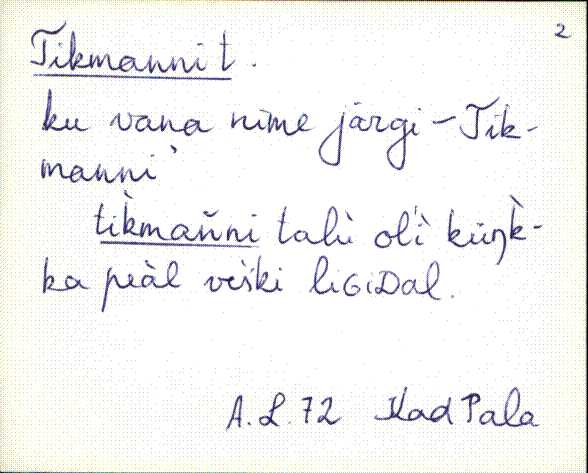 2
Tikmanni t.
ku vana nime järgi – Tik-
manni
tìkmañni talù oĺì küŋk̀-
ka peàl veśki liGiDal.
A. L. 72 Kad Pala